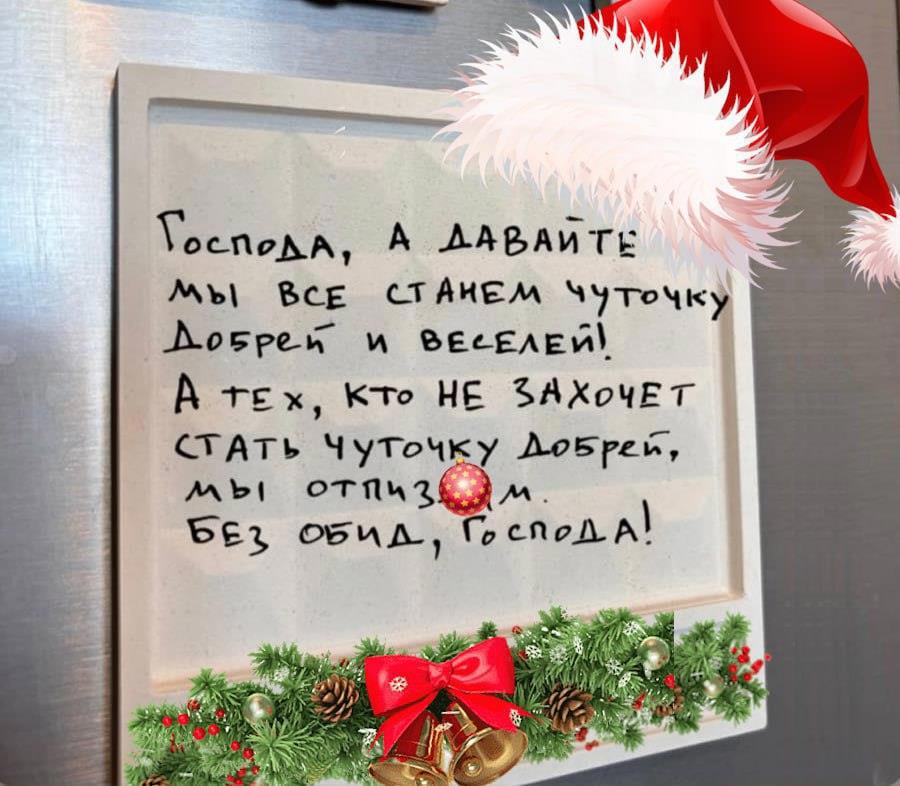 Господа, а давайте
мы все станем чуточку
добрей и веселей!
А тех, кто не захочет
стать чуточку добрей,
мы
без обид, Господа!